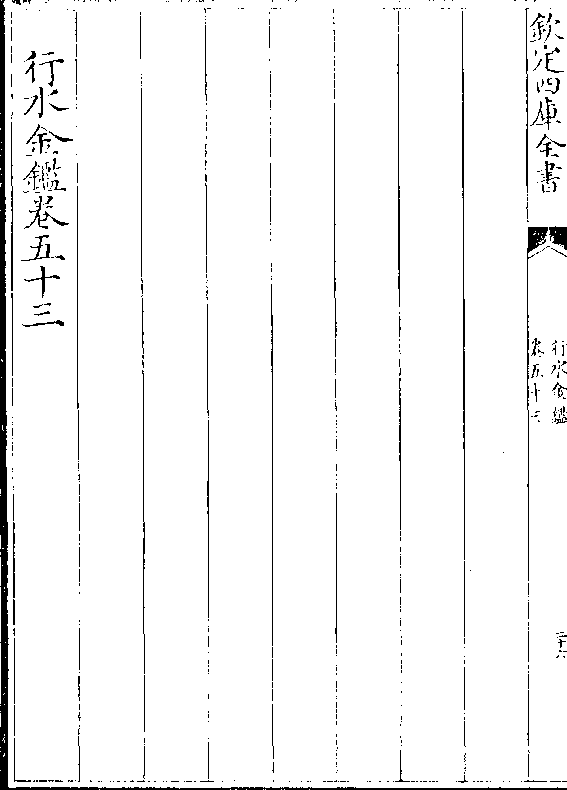 欽定四庫全書
行水金鑑
卷五十三
二十六
行水金鑑卷五十三